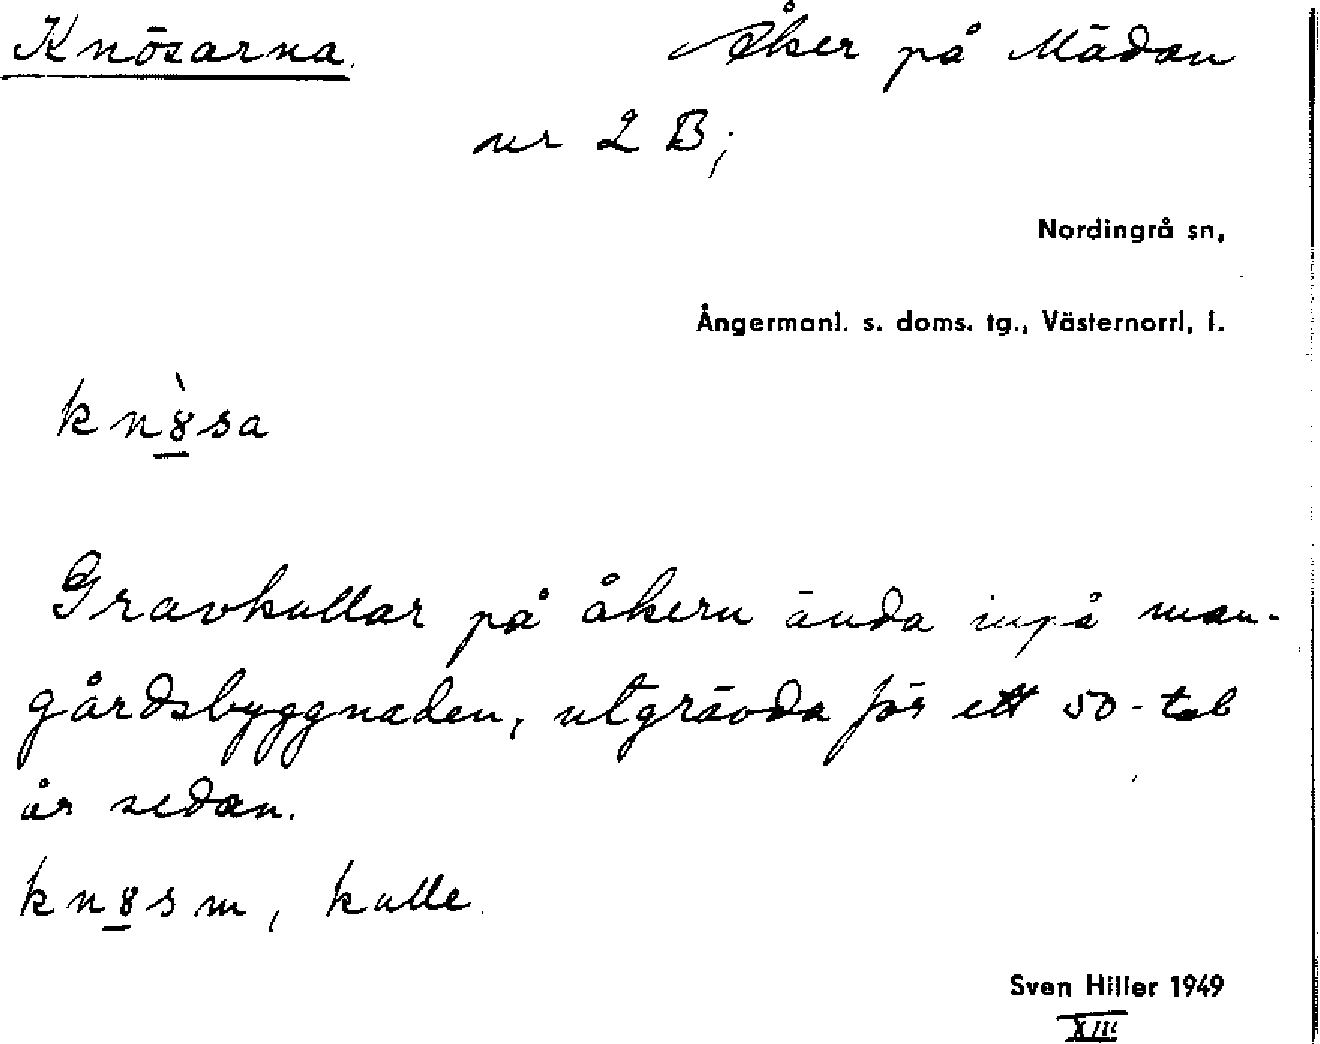 Knösarna. Åker på Mädan
nr 2 B;
Nordingrå sn,
Ångermanl. s. doms. tg., Västernorrl. l.
kn8̲̀sa
Gravkullar på åkern ända inpå man-
gårdsbyggnaden, utgrävda för ett 50-tal
år sedan.
kn8̲s m, kulle.
Sven Hiller 1949
XIII